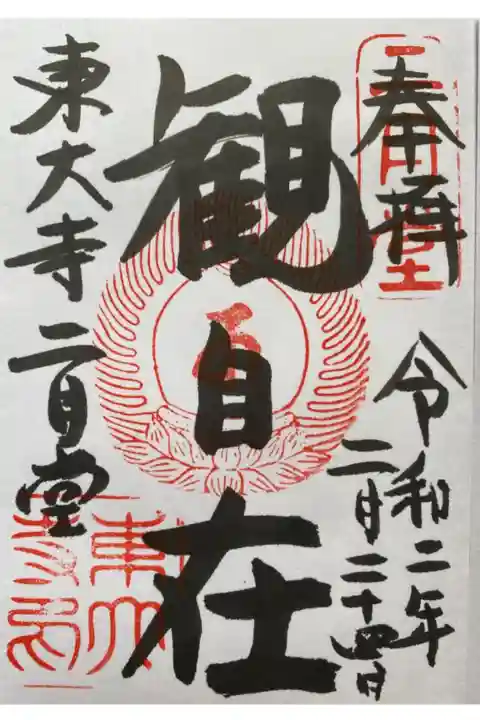 奉拝
令和二年
二月二十四日
観自在
東大寺二月堂